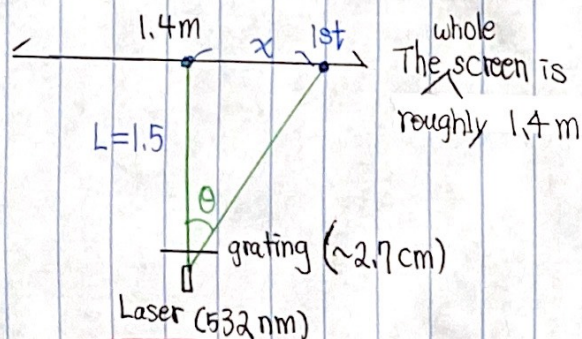 1.4m
x
1st
whole
The screen is
roughly 1.4 m
L=1.5
θ
grating (~2.7 cm)
Laser (532 nm)